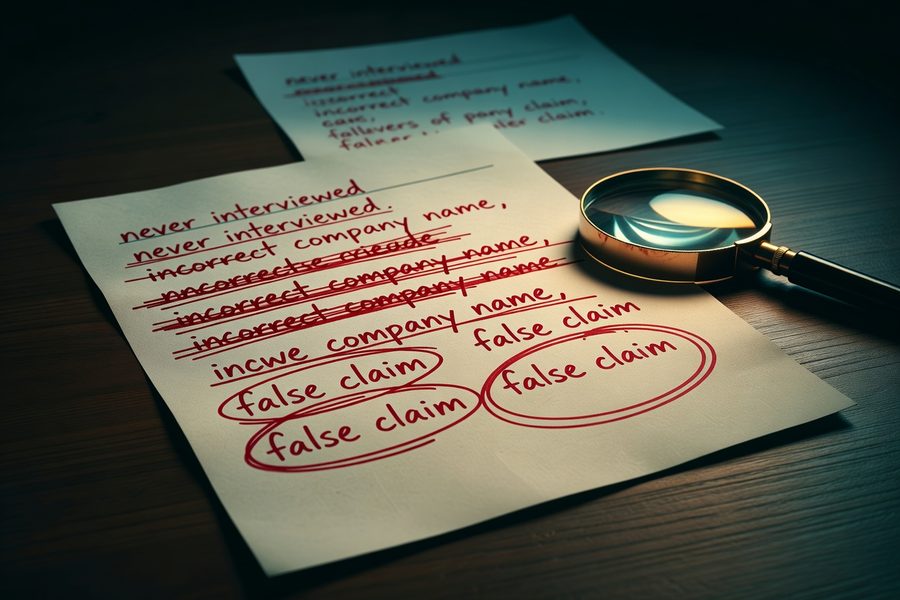 never interviewed
incorrect
incorrect company name,
claim,
never interviewed
never interviewed.
incorrect company name,
incorrect company name,
incorrect company name,
incwe company name,
false claim
false claim
false claim
false claim